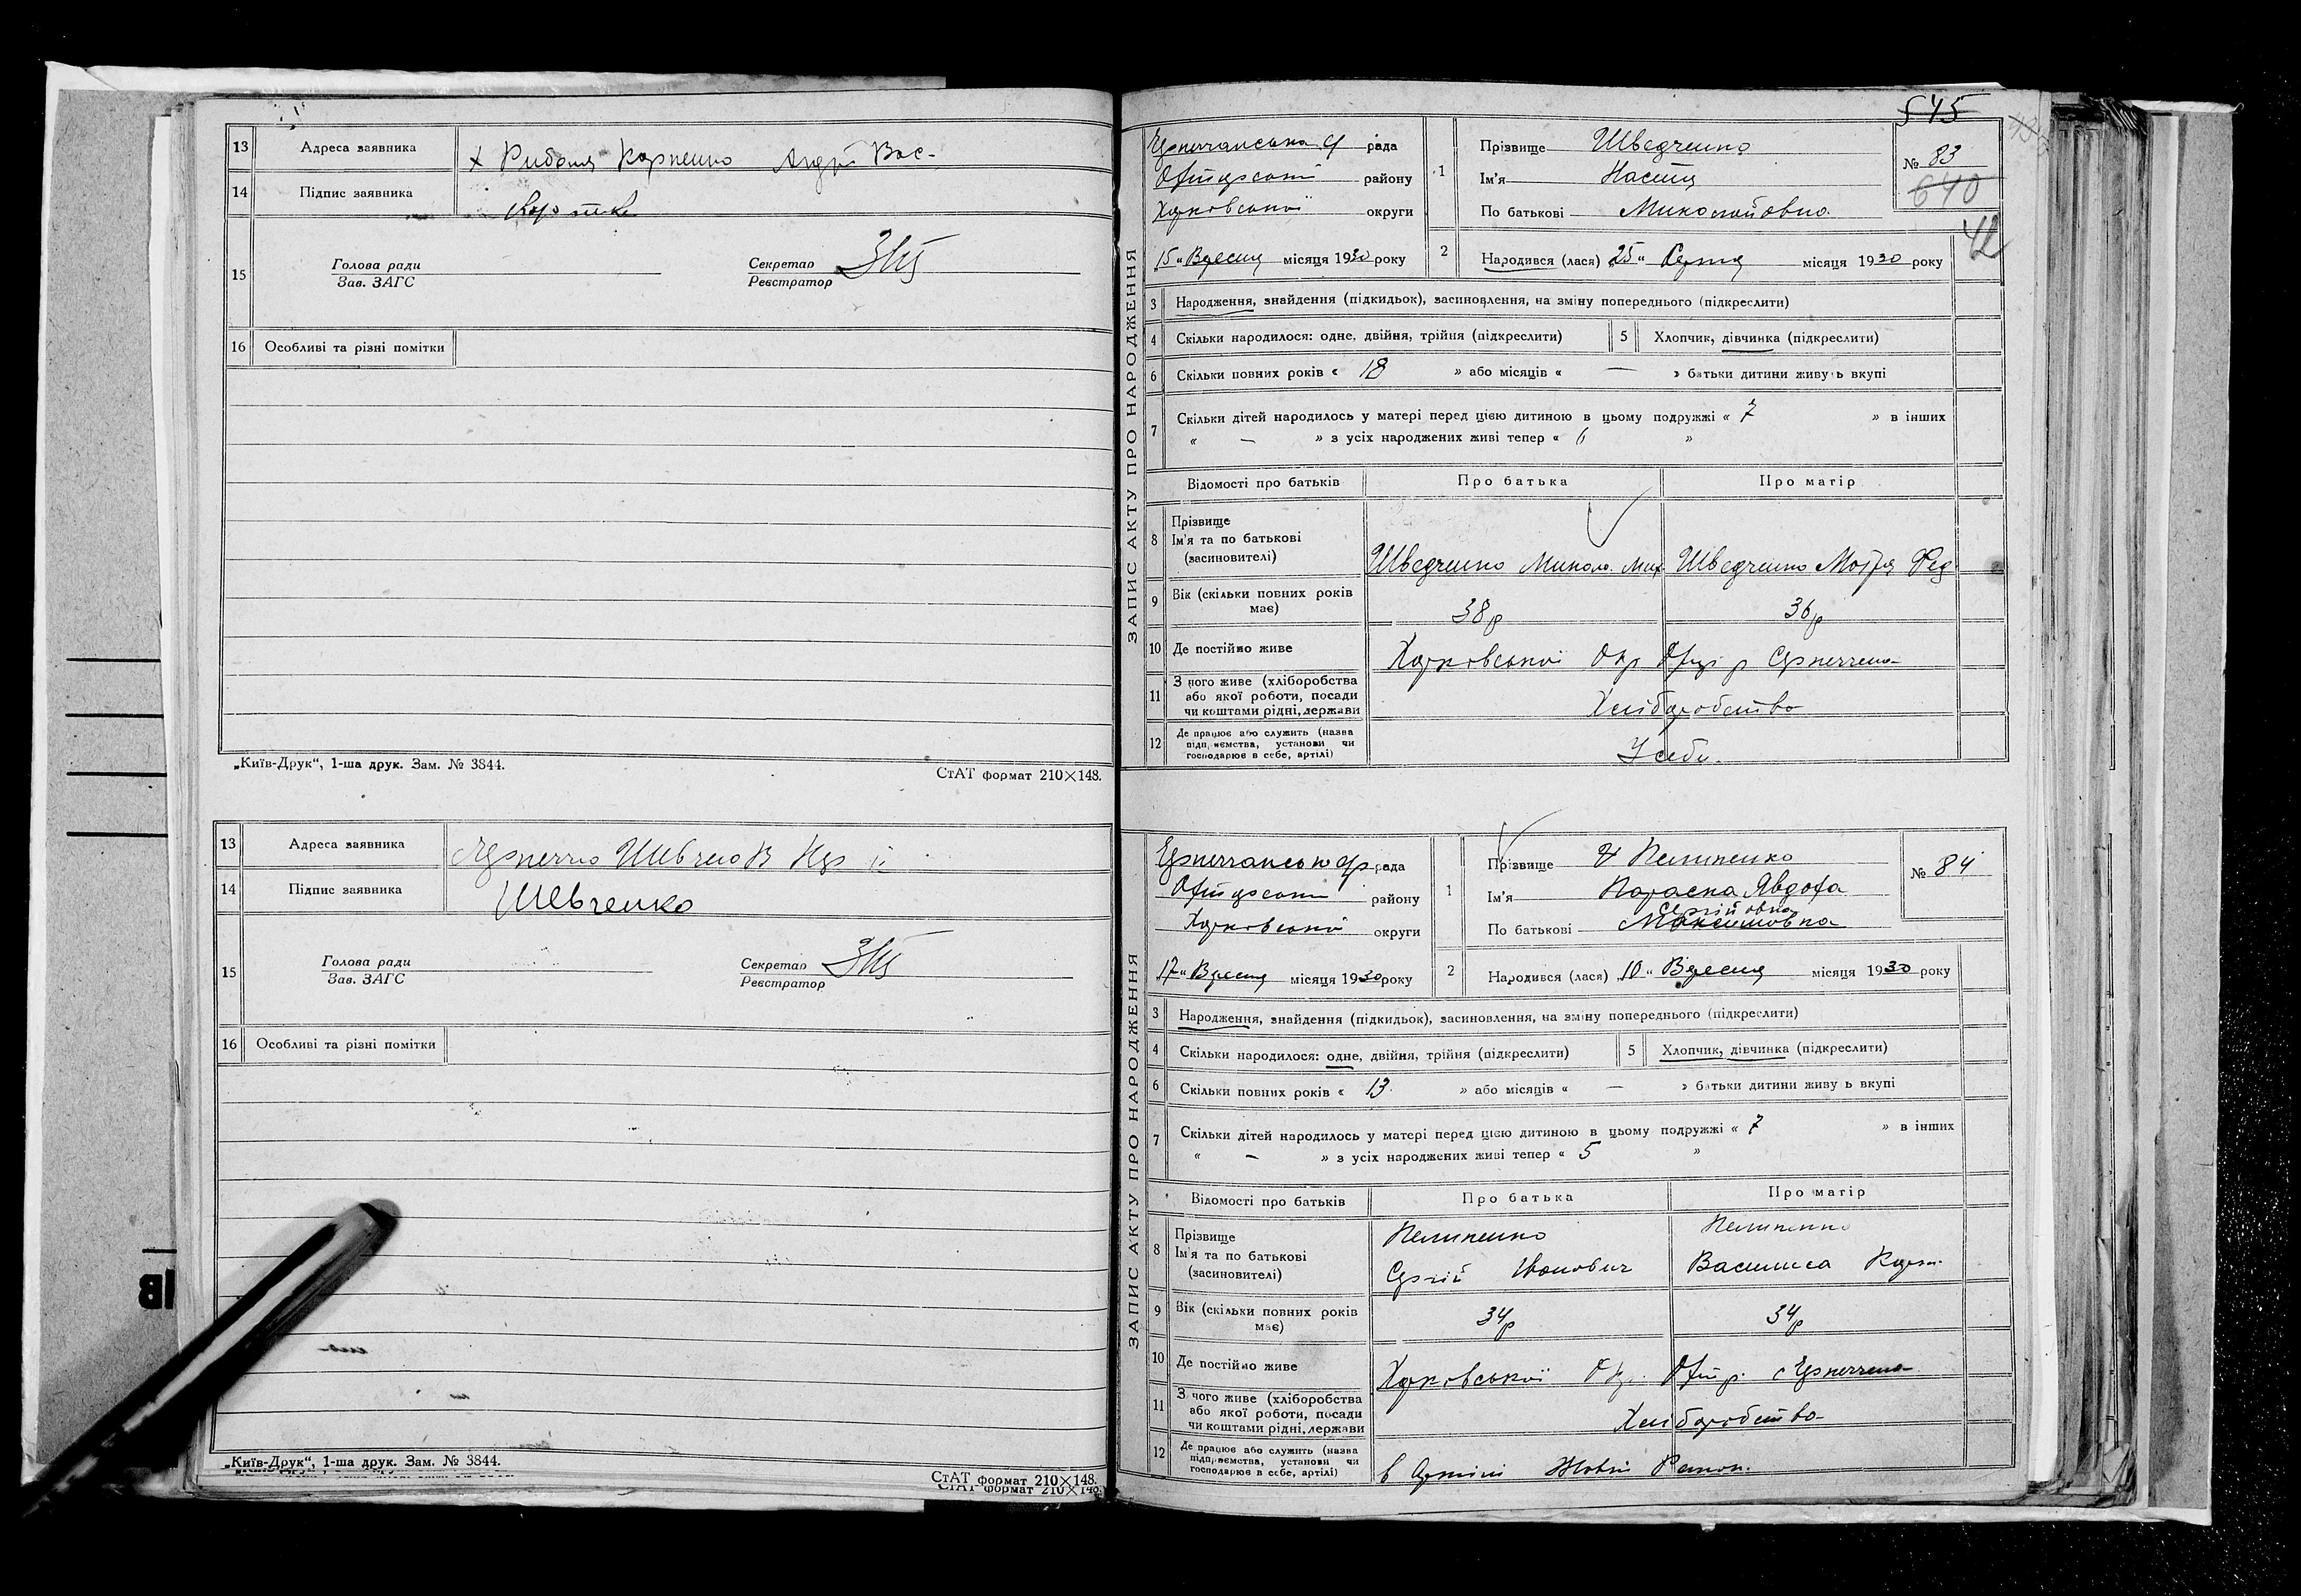 13 Адреса заявника
14 Підпис заявника
15 Голова ради
Зав. ЗАГС
Секретар
Реєстратор
16 Особливі та різні помітки
„Київ-Друк“, 1-ша друк. Зам. № 3844.
СтАТ формат 210×148.
13 Адреса заявника
14 Підпис заявника Шевченко
15 Голова ради
Зав. ЗАГС
Секретар
Реєстратор
16 Особливі та різні помітки
„Київ-Друк“, 1-ша друк. Зам. № 3844.
СтАТ формат 210×148.
545
ЗАПИС АКТУ ПРО НАРОДЖЕННЯ
рада
району
Харківської округи
„15“ Вересня місяця 1930 року
1 Прізвище Шведченко
Ім'я Настя
По батькові Миколайовна
№ 83
640
42
2 Народився (лася) „25“ Серпня місяця 1930 року
3 Народження, знайдення (підкидьок), засиновлення, на зміну попереднього (підкреслити)
4 Скільки народилося: одне, двійня, трійня (підкреслити) 5 Хлопчик, дівчинка (підкреслити)
6 Скільки повних років « 18 » або місяців « — » батьки дитини живуть вкупі
7 Скільки дітей народилось у матері перед цією дитиною в цьому подружжі « 7 » в інших
« — » з усіх народжених живі тепер « 6 »
Відомості про батьків Про батька Про матір
8 Прізвище
Ім'я та по батькові
(засиновителі)
Шведченко Микола Мих Шведченко Мотря Фед
9 Вік (скільки повних років має) 38р 36р
10 Де постійно живе Харківської Окр
11 З чого живе (хліборобства або якої роботи, посади чи коштами рідні, держави Хліборобство
12 Де працює або служить (назва підприємства, установи чи господарює в себе, артілі) У себе.
ЗАПИС АКТУ ПРО НАРОДЖЕННЯ
рада
району
Харківської округи
„17“ Вересня місяця 1930 року
1 Прізвище Пелипенко
Ім'я Параска Явдоха
Сергійовна
По батькові Максимовна
№ 84
2 Народився (лася) „10“ Вересня місяця 1930 року
3 Народження, знайдення (підкидьок), засиновлення, на зміну попереднього (підкреслити)
4 Скільки народилося: одне, двійня, трійня (підкреслити) 5 Хлопчик, дівчинка (підкреслити)
6 Скільки повних років « 13 » або місяців « — » батьки дитини живуть вкупі
7 Скільки дітей народилось у матері перед цією дитиною в цьому подружжі « 7 » в інших
« — » з усіх народжених живі тепер « 5 »
Відомості про батьків Про батька Про матір
8 Прізвище
Ім'я та по батькові
(засиновителі)
Пелипенко Пелипенко
Сергій Іванович Василиса
9 Вік (скільки повних років має) 34р 34р
10 Де постійно живе Харківської
11 З чого живе (хліборобства або якої роботи, посади чи коштами рідні, держави Хліборобство
12 Де працює або служить (назва підприємства, установи чи господарює в себе, артілі) в Артілі